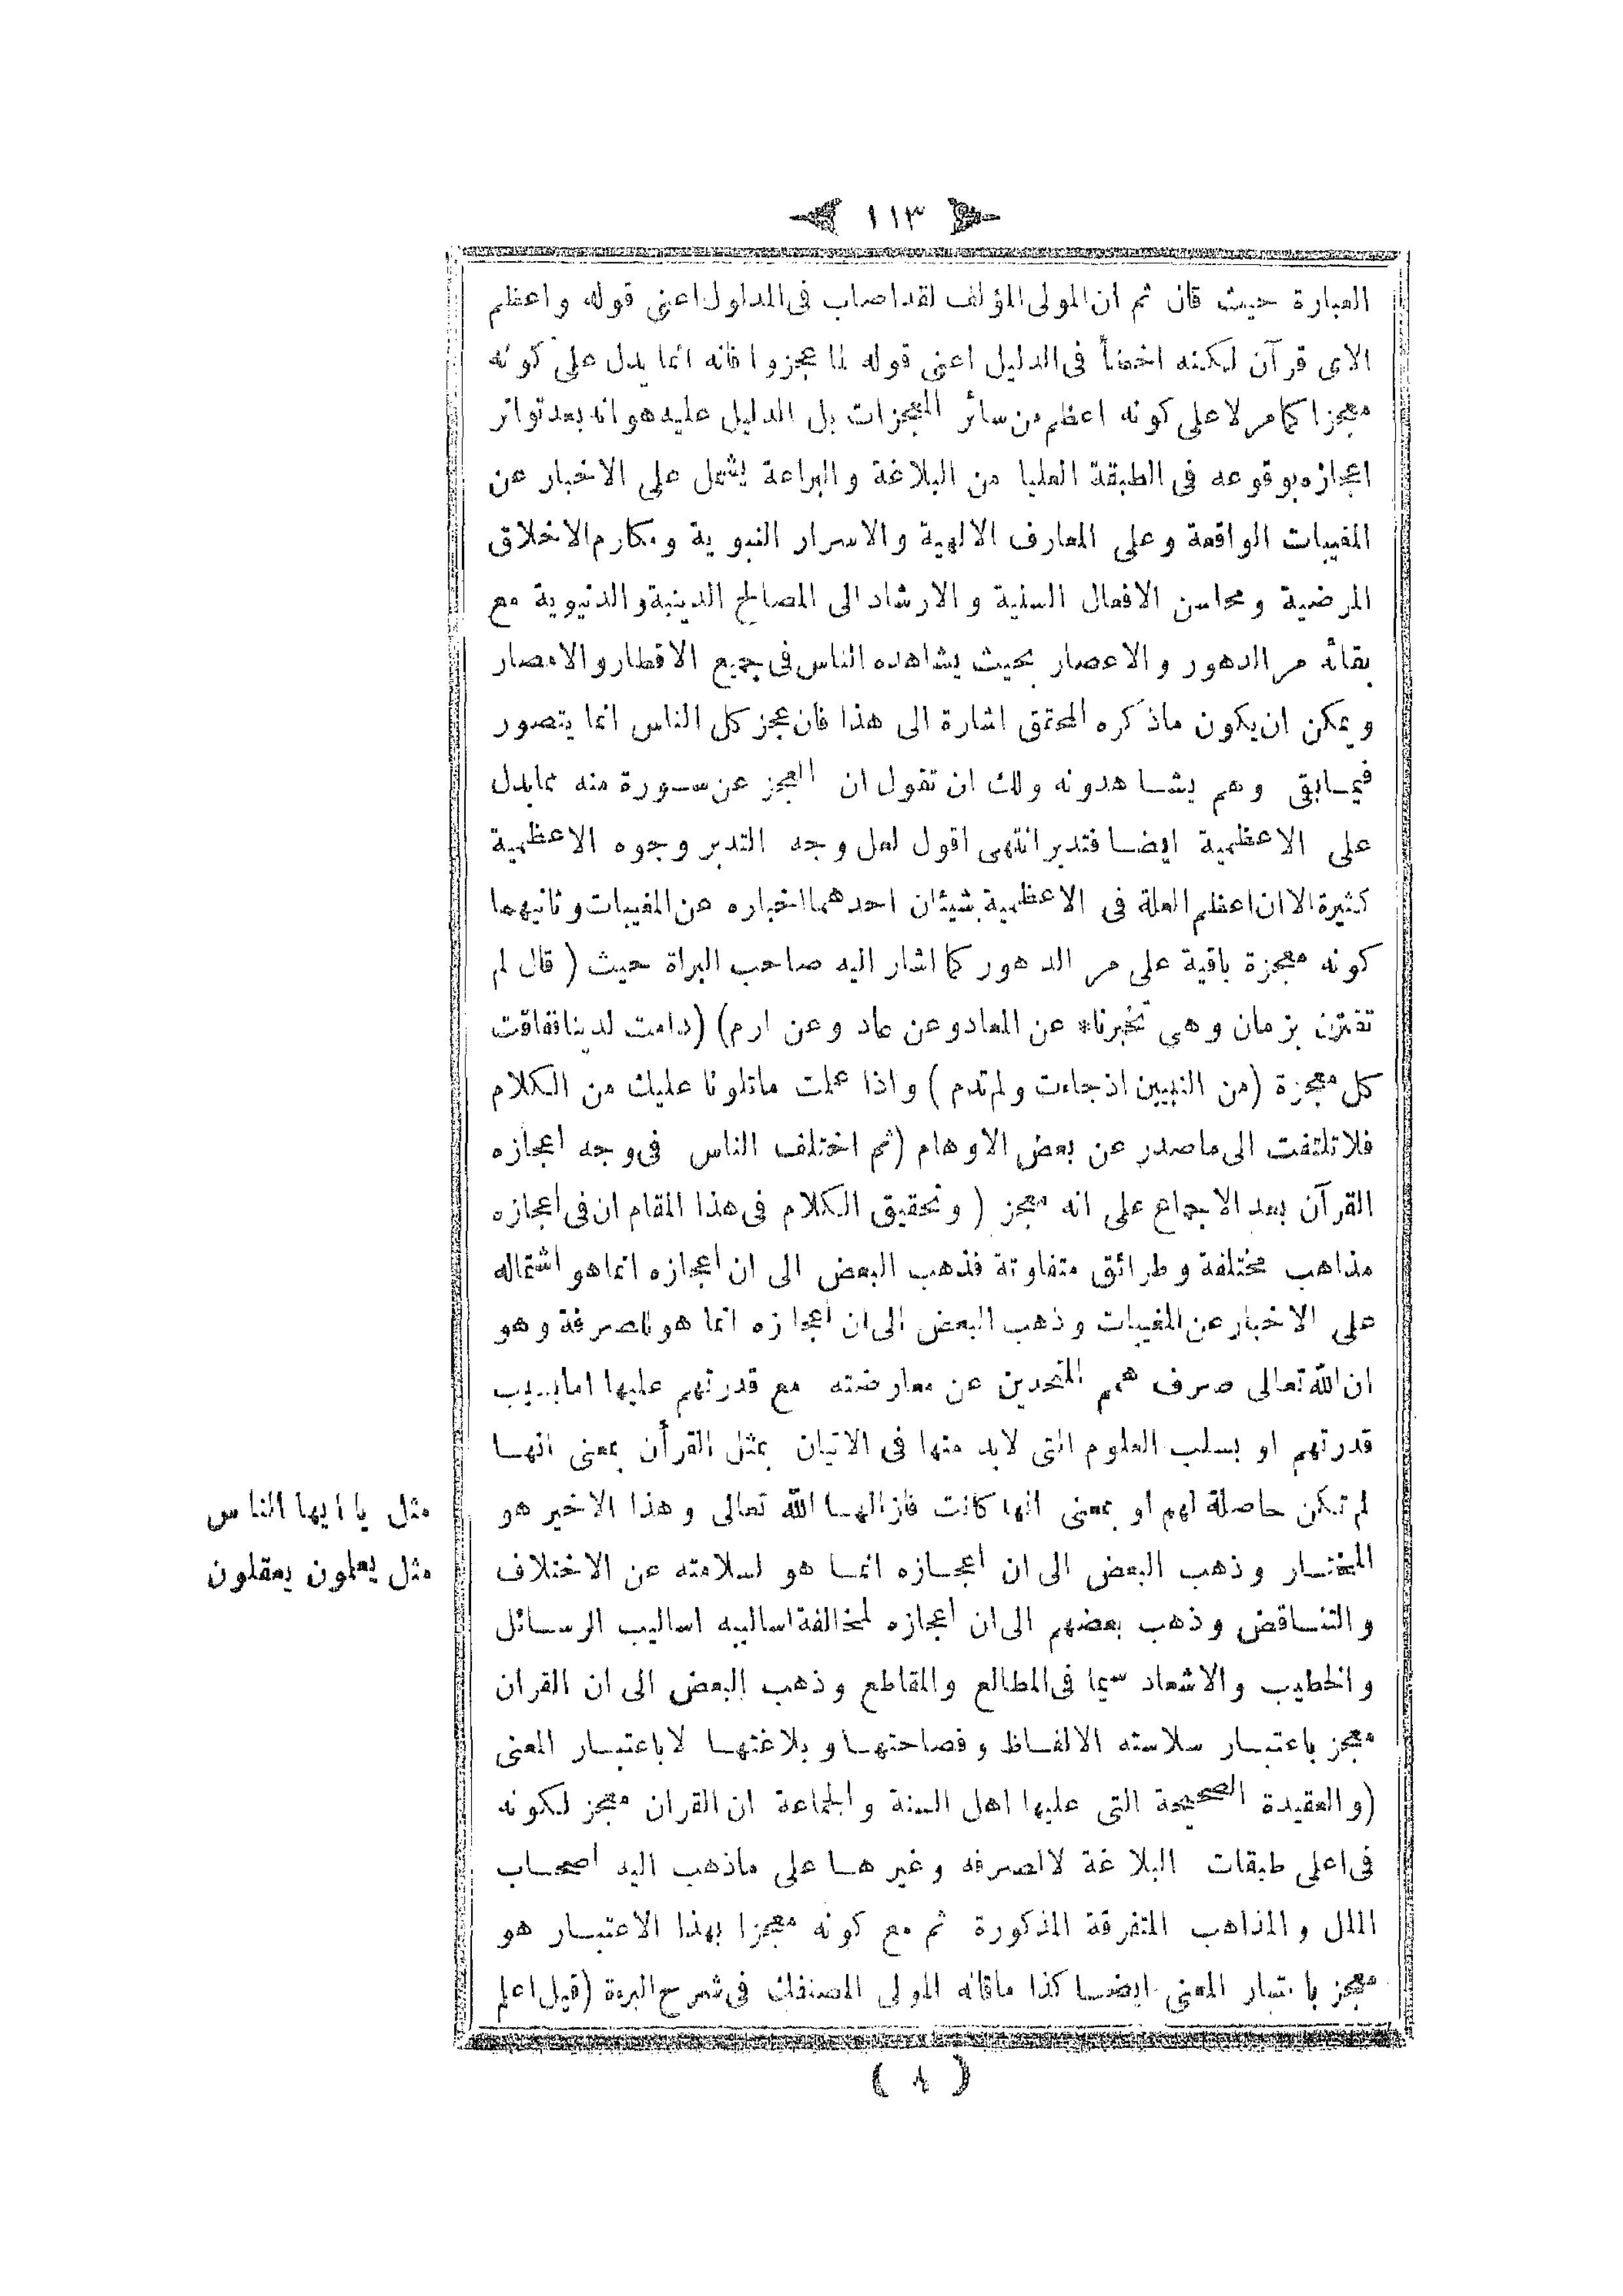 ١١٣
العبارة حيث قال ثم ان المولى المؤلف لقد اصاب فى المدلول اعنى قوله واعظم
الاى قرآن لكنه اخطأ فى الدليل اعنى قوله لما عجزوا فانه انما يدل على كونه
معجزا كما مر لا على كونه اعظم من سائر المعجزات بل الدليل عليه هو انه بعد تواتر
اعجازه بوقوعه فى الطبقة العليا من البلاغة والبراعة يشتمل على الاخبار عن
المغيبات الواقعة وعلى المعارف الالهية والاسرار النبوية ومكارم الاخلاق
المرضية ومحاسن الافعال السنية والارشاد الى المصالح الدينية والدنيوية مع
بقائه مر الدهور والاعصار بحيث يشاهده الناس فى جميع الاقطار والامصار
ويمكن ان يكون ماذكره المحقق اشارة الى هذا فان عجز كل الناس انما يتصور
فيما بقى وهم يشاهدونه ولك ان تقول ان العجز عن سورة منه مما يدل
على الاعظمية ايضا فتدبر انتهى اقول لعل وجه التدبر وجوه الاعظمية
كثيرة الا ان اعظم العلة فى الاعظمية شيئان احدهما اخباره عن المغيبات وثانيهما
كونه معجزة باقية على مر الدهور كما اشار اليه صاحب البراة حيث (قال لم
تقترن بزمان وهى تخبرنا* عن المعاد وعن عاد وعن ارم) (دامت لدينا ففاقت
كل معجزة (من النبيين اذ جاءت ولم تدم) واذا علمت ماتلونا عليك من الكلام
فلا تلتفت الى ماصدر عن بعض الاوهام (ثم اختلف الناس فى وجه اعجازه
القرآن بعد الاجماع على انه معجز (وتحقيق الكلام فى هذا المقام ان فى اعجازه
مذاهب مختلفة وطرائق متفاوتة فذهب البعض الى ان اعجازه انما هو اشتماله
على الاخبار عن المغيبات وذهب البعض الى ان اعجازه انما هو للصرفة وهو
ان الله تعالى صرف همم المتحدين عن معارضته مع قدرتهم عليها اما بسبب
قدرتهم او بسلب العلوم التى لابد منها فى الاتيان بمثل القرأن بمعنى انها
لم تكن حاصلة لهم او بمعنى انها كانت فازالها الله تعالى وهذا الاخير هو
المختار وذهب البعض الى ان اعجازه انما هو لسلامته عن الاختلاف
والتناقض وذهب بعضهم الى ان اعجازه لمخالفة اساليبه اساليب الرسائل
والخطيب والاشعاد سيما فى المطالع والمقاطع وذهب البعض الى ان القران
معجز باعتبار سلاسته الالفاظ وفصاحتها وبلاغتها لا باعتبار المعنى
(والعقيدة الصحيحة التى عليها اهل السنة والجماعة ان القران معجز لكونه
فى اعلى طبقات البلاغة لا الصرفه وغيرها على ماذهب اليه اصحاب
الملل والمذاهب المتفرقة المذكورة ثم مع كونه معجزا بهذا الاعتبار هو
معجز باعتبار المعنى ايضا كذا ماقاله المولى المصنفك فى شرح البردة (قيل اعلم
مثل يا ايها الناس
مثل يعلمون يعقلون
( ٨ )